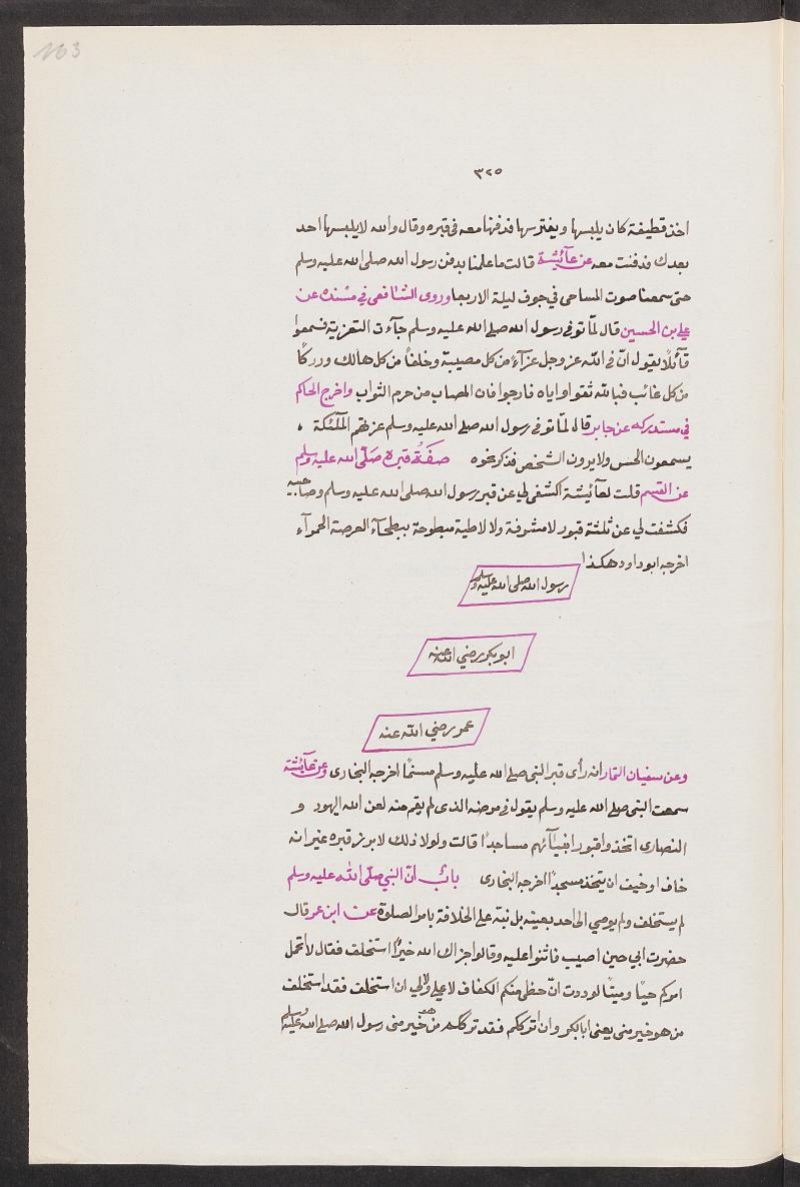 163
٣٢٥
اخذ قطيفة كان يلبسها ويفترسها فدفنها معه في قبره وقال والله لا يلبسها احد
بعدك فدفنت معه عن عآئشة قالت ما علمنا بدفن رسول الله صلى الله عليه وسلم
حتى سمعنا صوت المساحى في جوف ليلة الاربعا وروى الشافعى في مسنده عن
على بن الحسين قال لمّا توفى رسول الله صلى الله عليه وسلم جآءت التعزية فسمعوا
قآئلًا يقول انّ في الله عز وجل عزآءً من كل مصيبة وخلفًا من كل هالك ودركًا
من كل غائب فبالله ثقوا واياه فارجوا فان المصاب من حرم الثواب واخرج الحاكم
في مستدركه عن جابر قال لمّا توفى رسول الله صلى الله عليه وسلم عزتهم الملٓئكة
يسمعون الحس ولا يرون الشخص فذكر نحوه صفة قبره صلّى الله عليه وسلم
عن القسم قلت لعآئيشة اكشفى لي عن قبر رسول الله صلى الله عليه وسلم وصاحبيه
فكشفت لي عن ثلثة قبور لا مشوفة ولا لاطية مبطوحة ببطحآء العرصة الحمرآء
اخرجه ابوداود هكذا
رسول الله صلى الله عليه وسلم
ابو بكر رضي الله عنه
عمر رضي الله عنه
وعن سفيان التمار انه رأى قبر النبى صلى الله عليه وسلم مسنمًا اخرجه البخارى وعن عآئشة
سمعت النبى صلى الله عليه وسلم يقول في مرضه الذى لم يقم منه لعن الله اليهود و
النصارى اتخذوا قبور انبيآئهم مساجدًا قالت ولولا ذلك لابرز قبره غير انه
خاف او خيف ان يتخذ مسجدًا اخرجه البخارى بابٌ انّ النبي صلّى الله عليه وسلم
لم يستخلف ولم يوصي الى احد بعينه بل نبّه على الخلافة بامر الصلوة عن ابن عمر قال
حضرت ابي حين اصيب فاثنوا عليه وقالوا جزاك الله خيرًا استخلف فقال لأتحمل
امركم حيًا وميتًا لوددت انّ حظى منكم الكفاف لا على ولا لي ان استخلف فقد استخلف
من هو خير منى يعنى ابابكر وان اترككم فقد ترككم من هو خير منى رسول الله صلى الله عليه وسلم